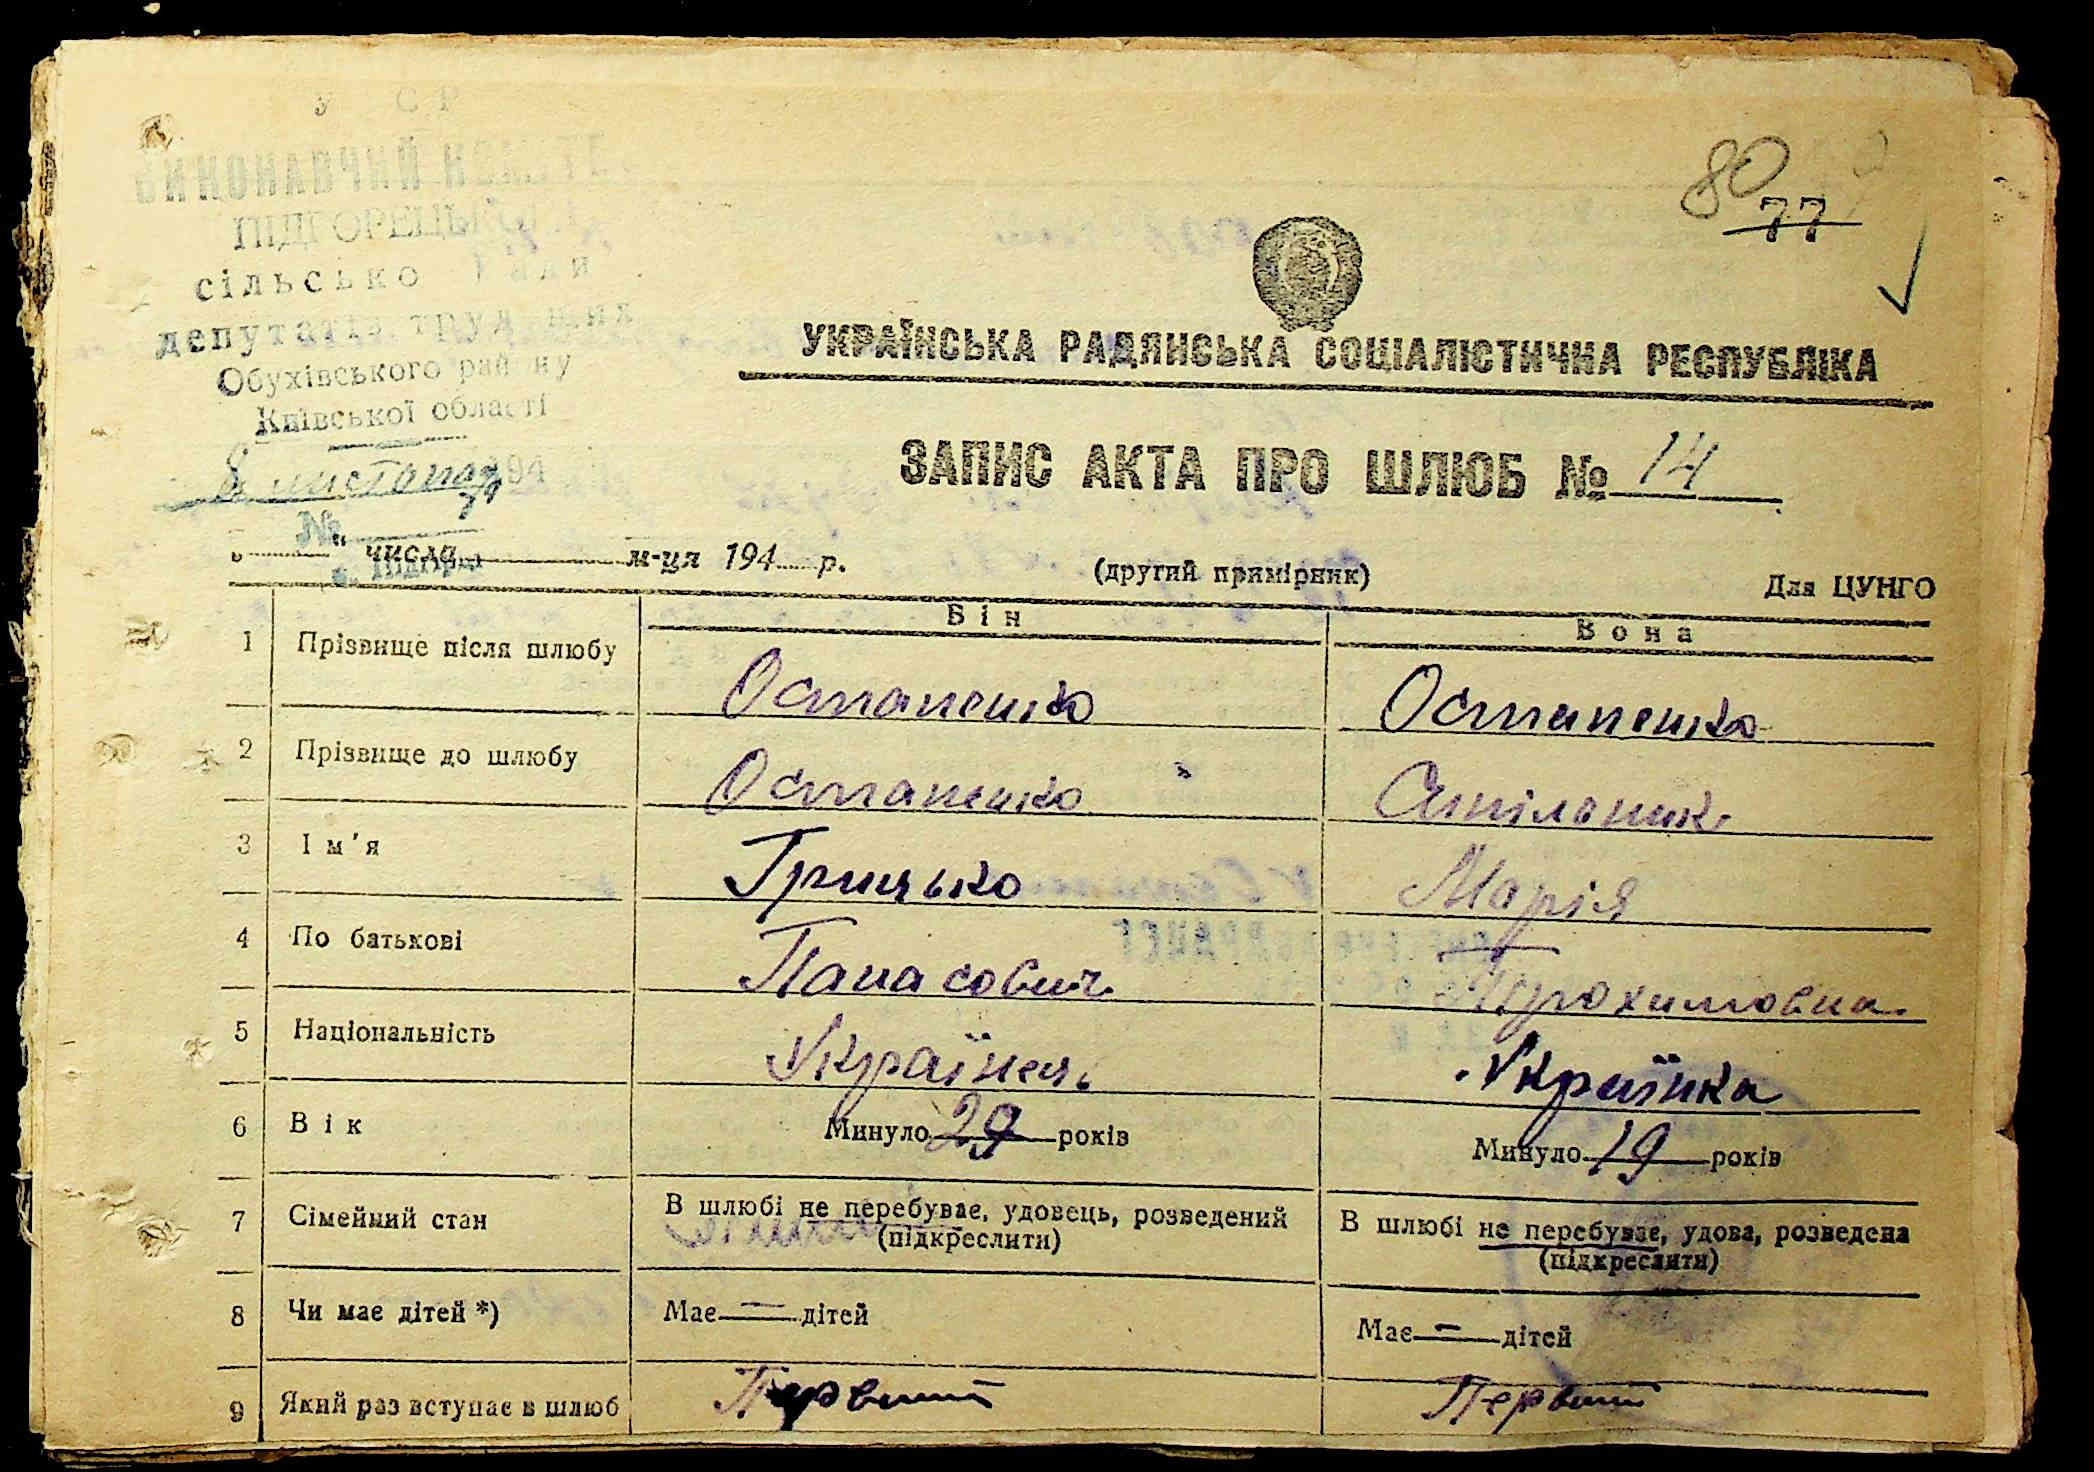 У СР
ВИКОНАВЧИЙ КОМІТЕТ
ПІДГОРЕЦЬ
сільсько
депутатів трудящих
Обухівського району
Київської області
8 листопад 194
№
с. Підгірці
80
77
УКРАЇНСЬКА РАДЯНСЬКА СОЦІАЛІСТИЧНА РЕСПУБЛІКА
ЗАПИС АКТА ПРО ШЛЮБ № 14
" " числа м-ця 194 р.
(другий примірник)
Для ЦУНГО
Він
Вона
1 Прізвище після шлюбу Остапенко Остапенко
2 Прізвище до шлюбу Остапенко
3 Ім'я Грицько Марія
4 По батькові Панасович Трохимовна
5 Національність Українець Українка
6 Вік Минуло 29 років Минуло 19 років
7 Сімейний стан В шлюбі не перебуває, удовець, розведений В шлюбі не перебуває, удова, розведена
(підкреслити) (підкреслити)
8 Чи має дітей *) Має — дітей Має — дітей
9 Який раз вступає в шлюб Первий Первий